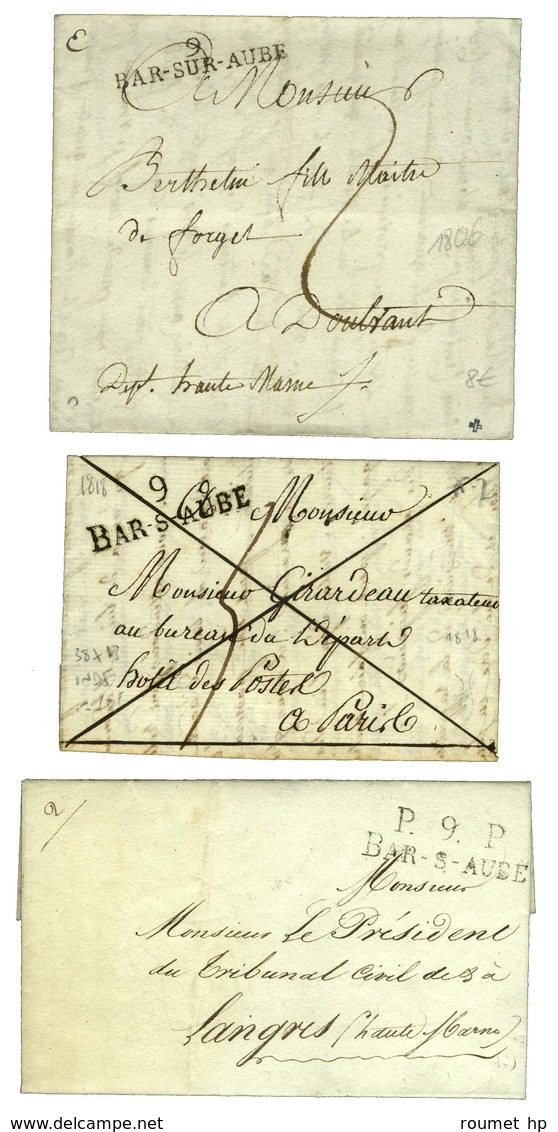 9
BAR-SUR-AUBE
A Monsieur
fils Maitre
de forges
A Doulevant
1806
Dept. haute Marne
8€
1818
9
BAR-S-AUBE
A Monsieur
Monsieur Girardeau taxateur
au bureau du Départ
1818
hotel des Postes
a Paris
P. 9. P.
BAR-S-AUBE
Monsieur
Monsieur Le Président
du Tribunal Civil de & à
Langres (haute Marne)
roumet hp